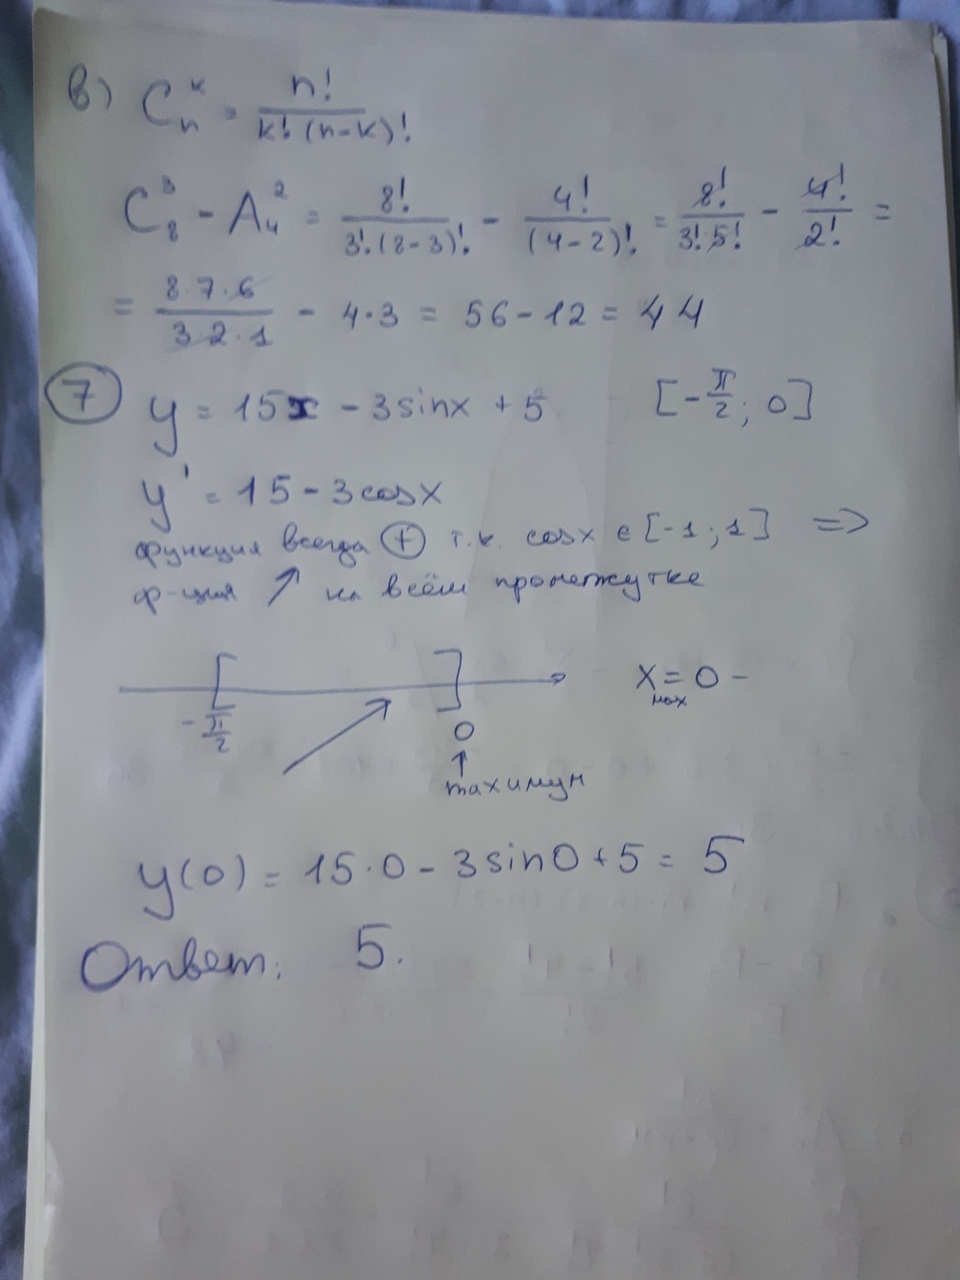 в) C_n^k = n! / k!·(n-k)!
C_8^3 - A_4^2 = 8! / 3!·(8-3)! - 4! / (4-2)! = 8! / 3!·5! - 4! / 2! =
= 8·7·6 / 3·2·1 - 4·3 = 56-12 = 44
7 y = 15x - 3sinx + 5 [-π/2; 0]
y' = 15 - 3cosx
функция всегда + т.к. cosx ∈ [-1; 1] =>
ф-ция ↗ на всём промежутке
x = 0 -
max
-π/2 0
↑
максимум
y(0) = 15·0 - 3sin0 + 5 = 5
Ответ: 5.